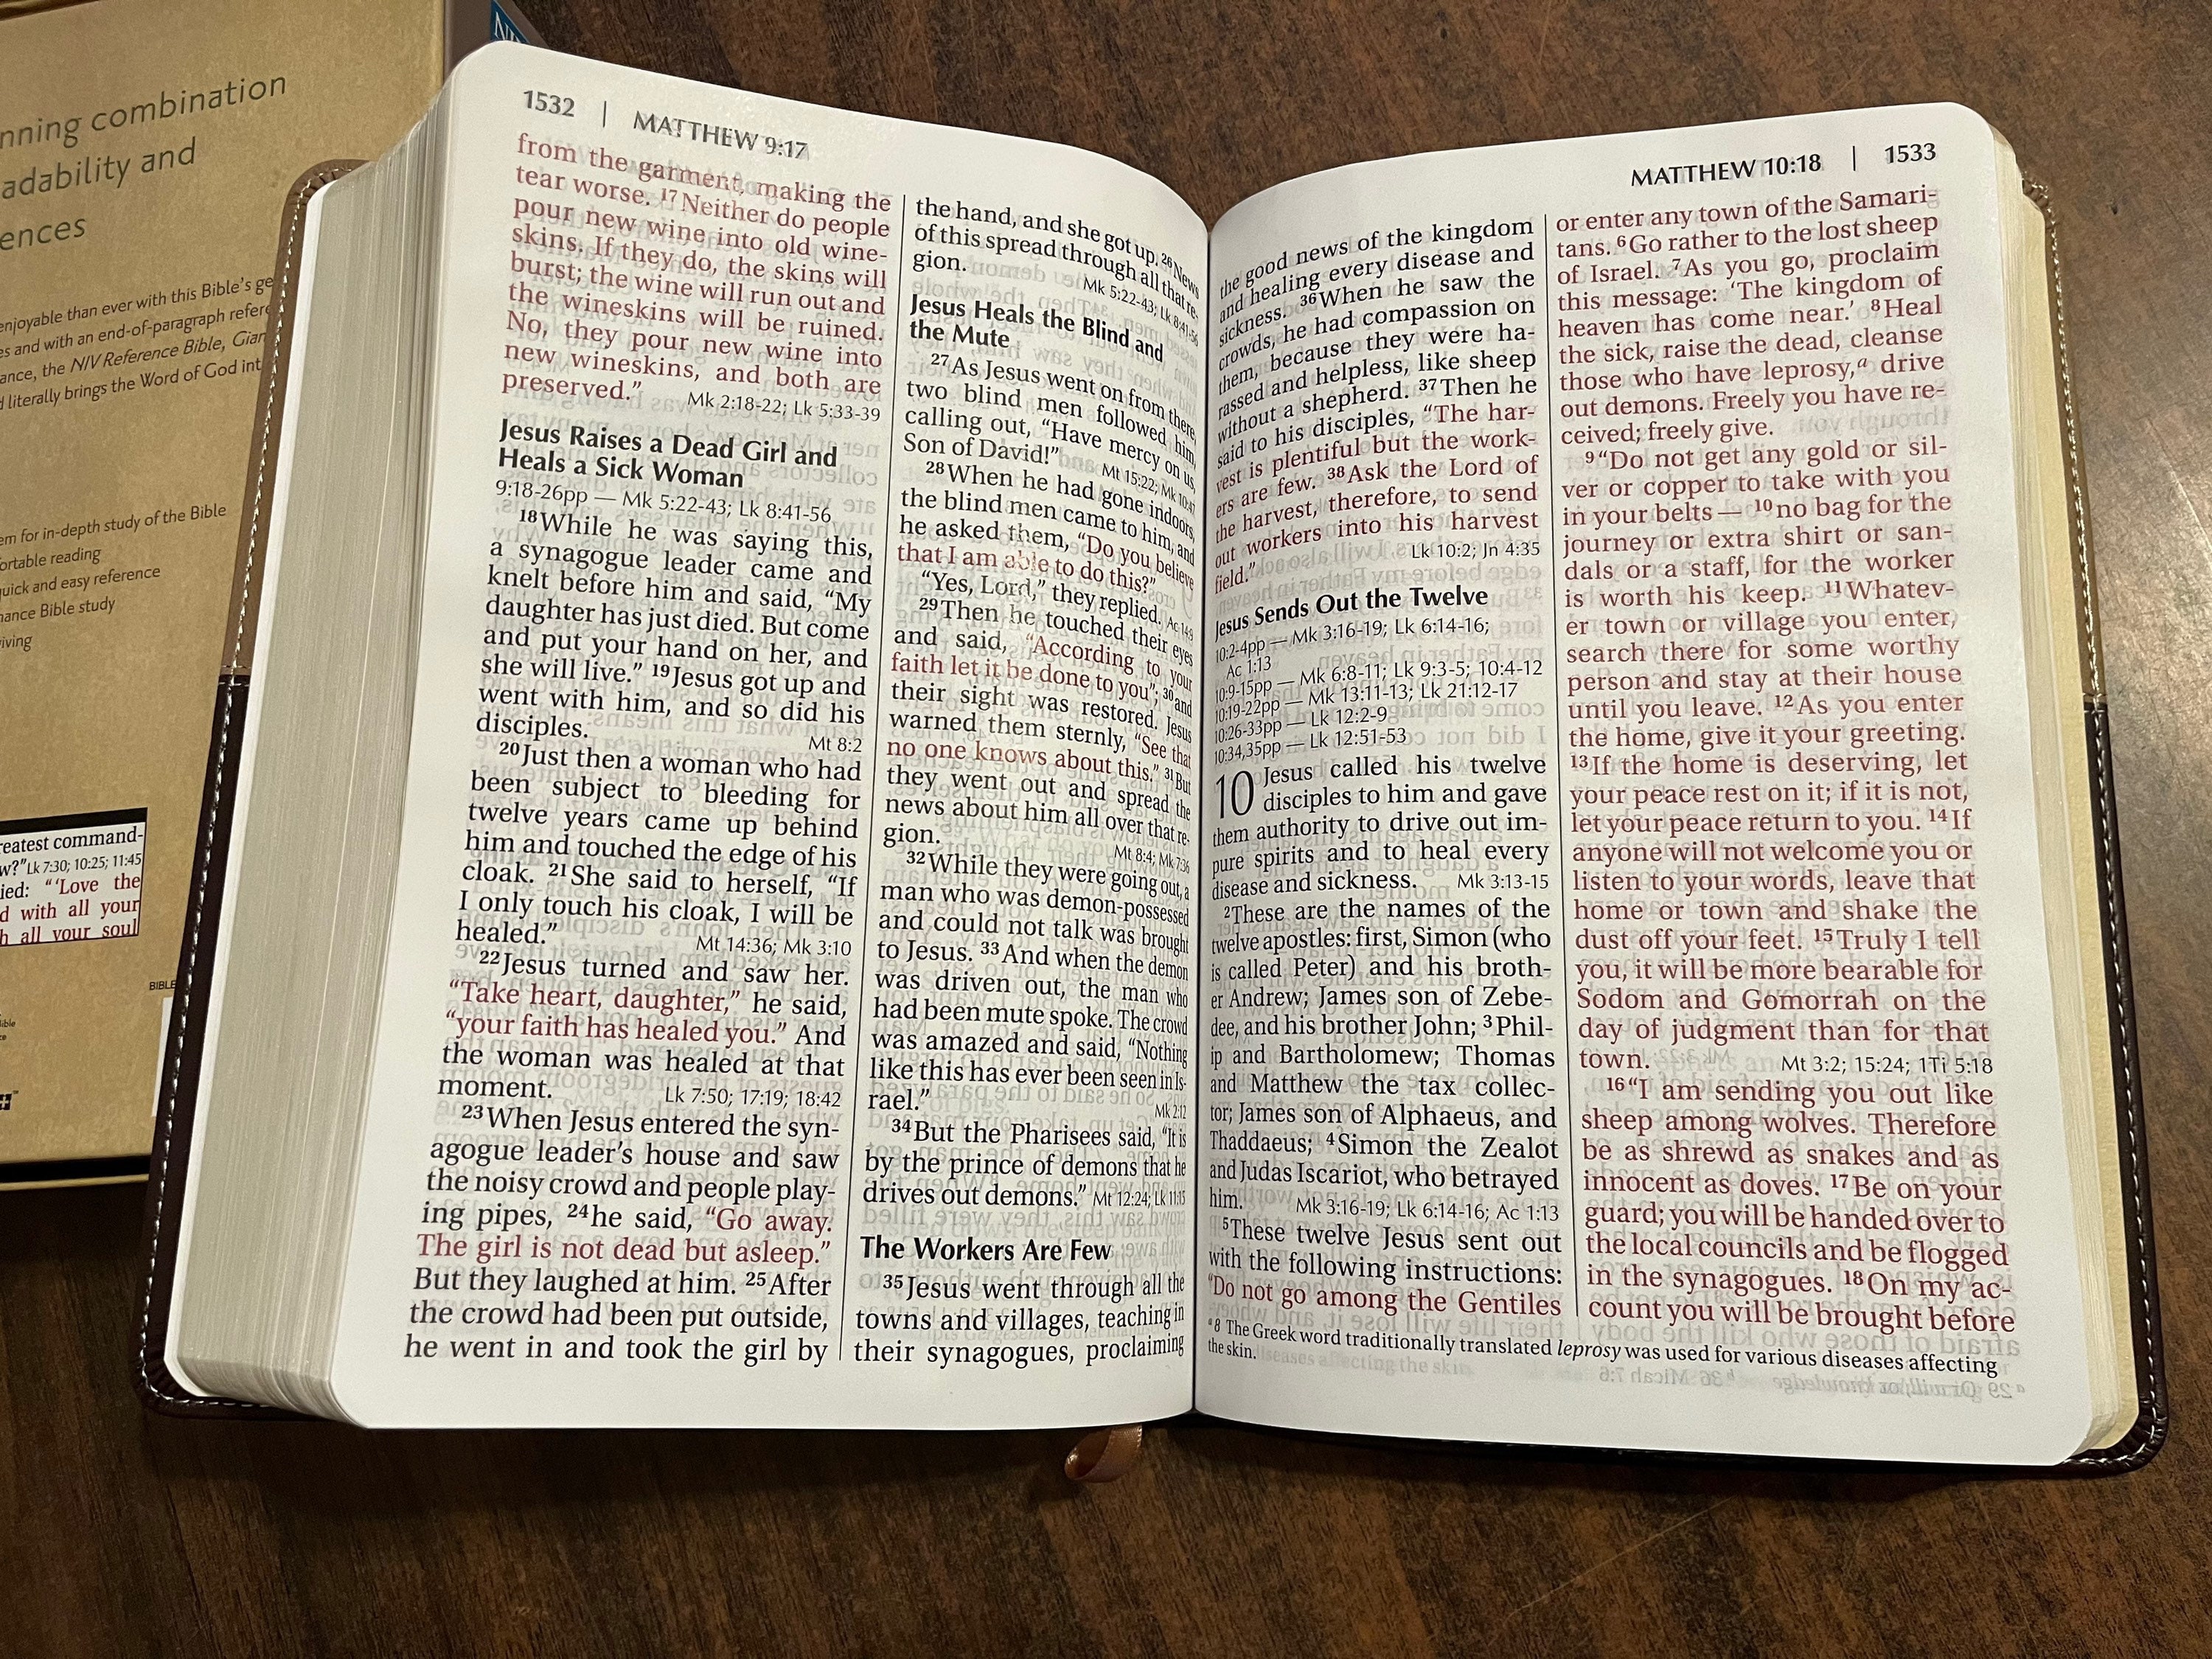 nning combination
adability and
ences
enjoyable than ever with this Bible's ge
es and with an end-of-paragraph refere
ance, the NIV Reference Bible, Gian
d literally brings the Word of God int
em for in-depth study of the Bible
ortable reading
quick and easy reference
nance Bible study
iving
reatest command-
w?" Lk 7:30; 10:25; 11:45
ied: "'Love the
d with all your
h all your soul
BIBLE
NI
1532 | MATTHEW 9:17
from the garment, making the
tear worse. 17 Neither do people
pour new wine into old wine-
skins. If they do, the skins will
burst; the wine will run out and
the wineskins will be ruined.
No, they pour new wine into
new wineskins, and both are
preserved." Mk 2:18-22; Lk 5:33-39
Jesus Raises a Dead Girl and
Heals a Sick Woman
9:18-26pp — Mk 5:22-43; Lk 8:41-56
18 While he was saying this,
a synagogue leader came and
knelt before him and said, "My
daughter has just died. But come
and put your hand on her, and
she will live." 19 Jesus got up and
went with him, and so did his
disciples. Mt 8:2
20 Just then a woman who had
been subject to bleeding for
twelve years came up behind
him and touched the edge of his
cloak. 21 She said to herself, "If
I only touch his cloak, I will be
healed." Mt 14:36; Mk 3:10
22 Jesus turned and saw her.
"Take heart, daughter," he said,
"your faith has healed you." And
the woman was healed at that
moment. Lk 7:50; 17:19; 18:42
23 When Jesus entered the syn-
agogue leader's house and saw
the noisy crowd and people play-
ing pipes, 24 he said, "Go away.
The girl is not dead but asleep."
But they laughed at him. 25 After
the crowd had been put outside,
he went in and took the girl by
the hand, and she got up. 26 News
of this spread through all that re-
gion. Mk 5:22-43; Lk 8:41-56
Jesus Heals the Blind and
the Mute
27 As Jesus went on from there,
two blind men followed him,
calling out, "Have mercy on us,
Son of David!" Mt 15:22; Mk 10:47
28 When he had gone indoors,
the blind men came to him, and
he asked them, "Do you believe
that I am able to do this?"
"Yes, Lord," they replied. Ac 14:9
29 Then he touched their eyes
and said, "According to your
faith let it be done to you"; 30 and
their sight was restored. Jesus
warned them sternly, "See that
no one knows about this." 31 But
they went out and spread the
news about him all over that re-
gion. Mt 8:4; Mk 7:36
32 While they were going out, a
man who was demon-possessed
and could not talk was brought
to Jesus. 33 And when the demon
was driven out, the man who
had been mute spoke. The crowd
was amazed and said, "Nothing
like this has ever been seen in Is-
rael." Mk 2:12
34 But the Pharisees said, "It is
by the prince of demons that he
drives out demons." Mt 12:24; Lk 11:15
The Workers Are Few
35 Jesus went through all the
towns and villages, teaching in
their synagogues, proclaiming
MATTHEW 10:18 | 1533
the good news of the kingdom
and healing every disease and
sickness. 36 When he saw the
crowds, he had compassion on
them, because they were ha-
rassed and helpless, like sheep
without a shepherd. 37 Then he
said to his disciples, "The har-
vest is plentiful but the work-
ers are few. 38 Ask the Lord of
the harvest, therefore, to send
out workers into his harvest
field." Lk 10:2; Jn 4:35
Jesus Sends Out the Twelve
10:2-4pp — Mk 3:16-19; Lk 6:14-16;
Ac 1:13
10:9-15pp — Mk 6:8-11; Lk 9:3-5; 10:4-12
10:19-22pp — Mk 13:11-13; Lk 21:12-17
10:26-33pp — Lk 12:2-9
10:34,35pp — Lk 12:51-53
10 Jesus called his twelve
disciples to him and gave
them authority to drive out im-
pure spirits and to heal every
disease and sickness. Mk 3:13-15
2 These are the names of the
twelve apostles: first, Simon (who
is called Peter) and his broth-
er Andrew; James son of Zebe-
dee, and his brother John; 3 Phil-
ip and Bartholomew; Thomas
and Matthew the tax collec-
tor; James son of Alphaeus, and
Thaddaeus; 4 Simon the Zealot
and Judas Iscariot, who betrayed
him. Mk 3:16-19; Lk 6:14-16; Ac 1:13
5 These twelve Jesus sent out
with the following instructions:
"Do not go among the Gentiles
or enter any town of the Samari-
tans. 6 Go rather to the lost sheep
of Israel. 7 As you go, proclaim
this message: 'The kingdom of
heaven has come near.' 8 Heal
the sick, raise the dead, cleanse
those who have leprosy,a drive
out demons. Freely you have re-
ceived; freely give.
9 "Do not get any gold or sil-
ver or copper to take with you
in your belts — 10 no bag for the
journey or extra shirt or san-
dals or a staff, for the worker
is worth his keep. 11 Whatev-
er town or village you enter,
search there for some worthy
person and stay at their house
until you leave. 12 As you enter
the home, give it your greeting.
13 If the home is deserving, let
your peace rest on it; if it is not,
let your peace return to you. 14 If
anyone will not welcome you or
listen to your words, leave that
home or town and shake the
dust off your feet. 15 Truly I tell
you, it will be more bearable for
Sodom and Gomorrah on the
day of judgment than for that
town. Mt 3:2; 15:24; 1Ti 5:18
16 "I am sending you out like
sheep among wolves. Therefore
be as shrewd as snakes and as
innocent as doves. 17 Be on your
guard; you will be handed over to
the local councils and be flogged
in the synagogues. 18 On my ac-
count you will be brought before
a 8 The Greek word traditionally translated leprosy was used for various diseases affecting
the skin.